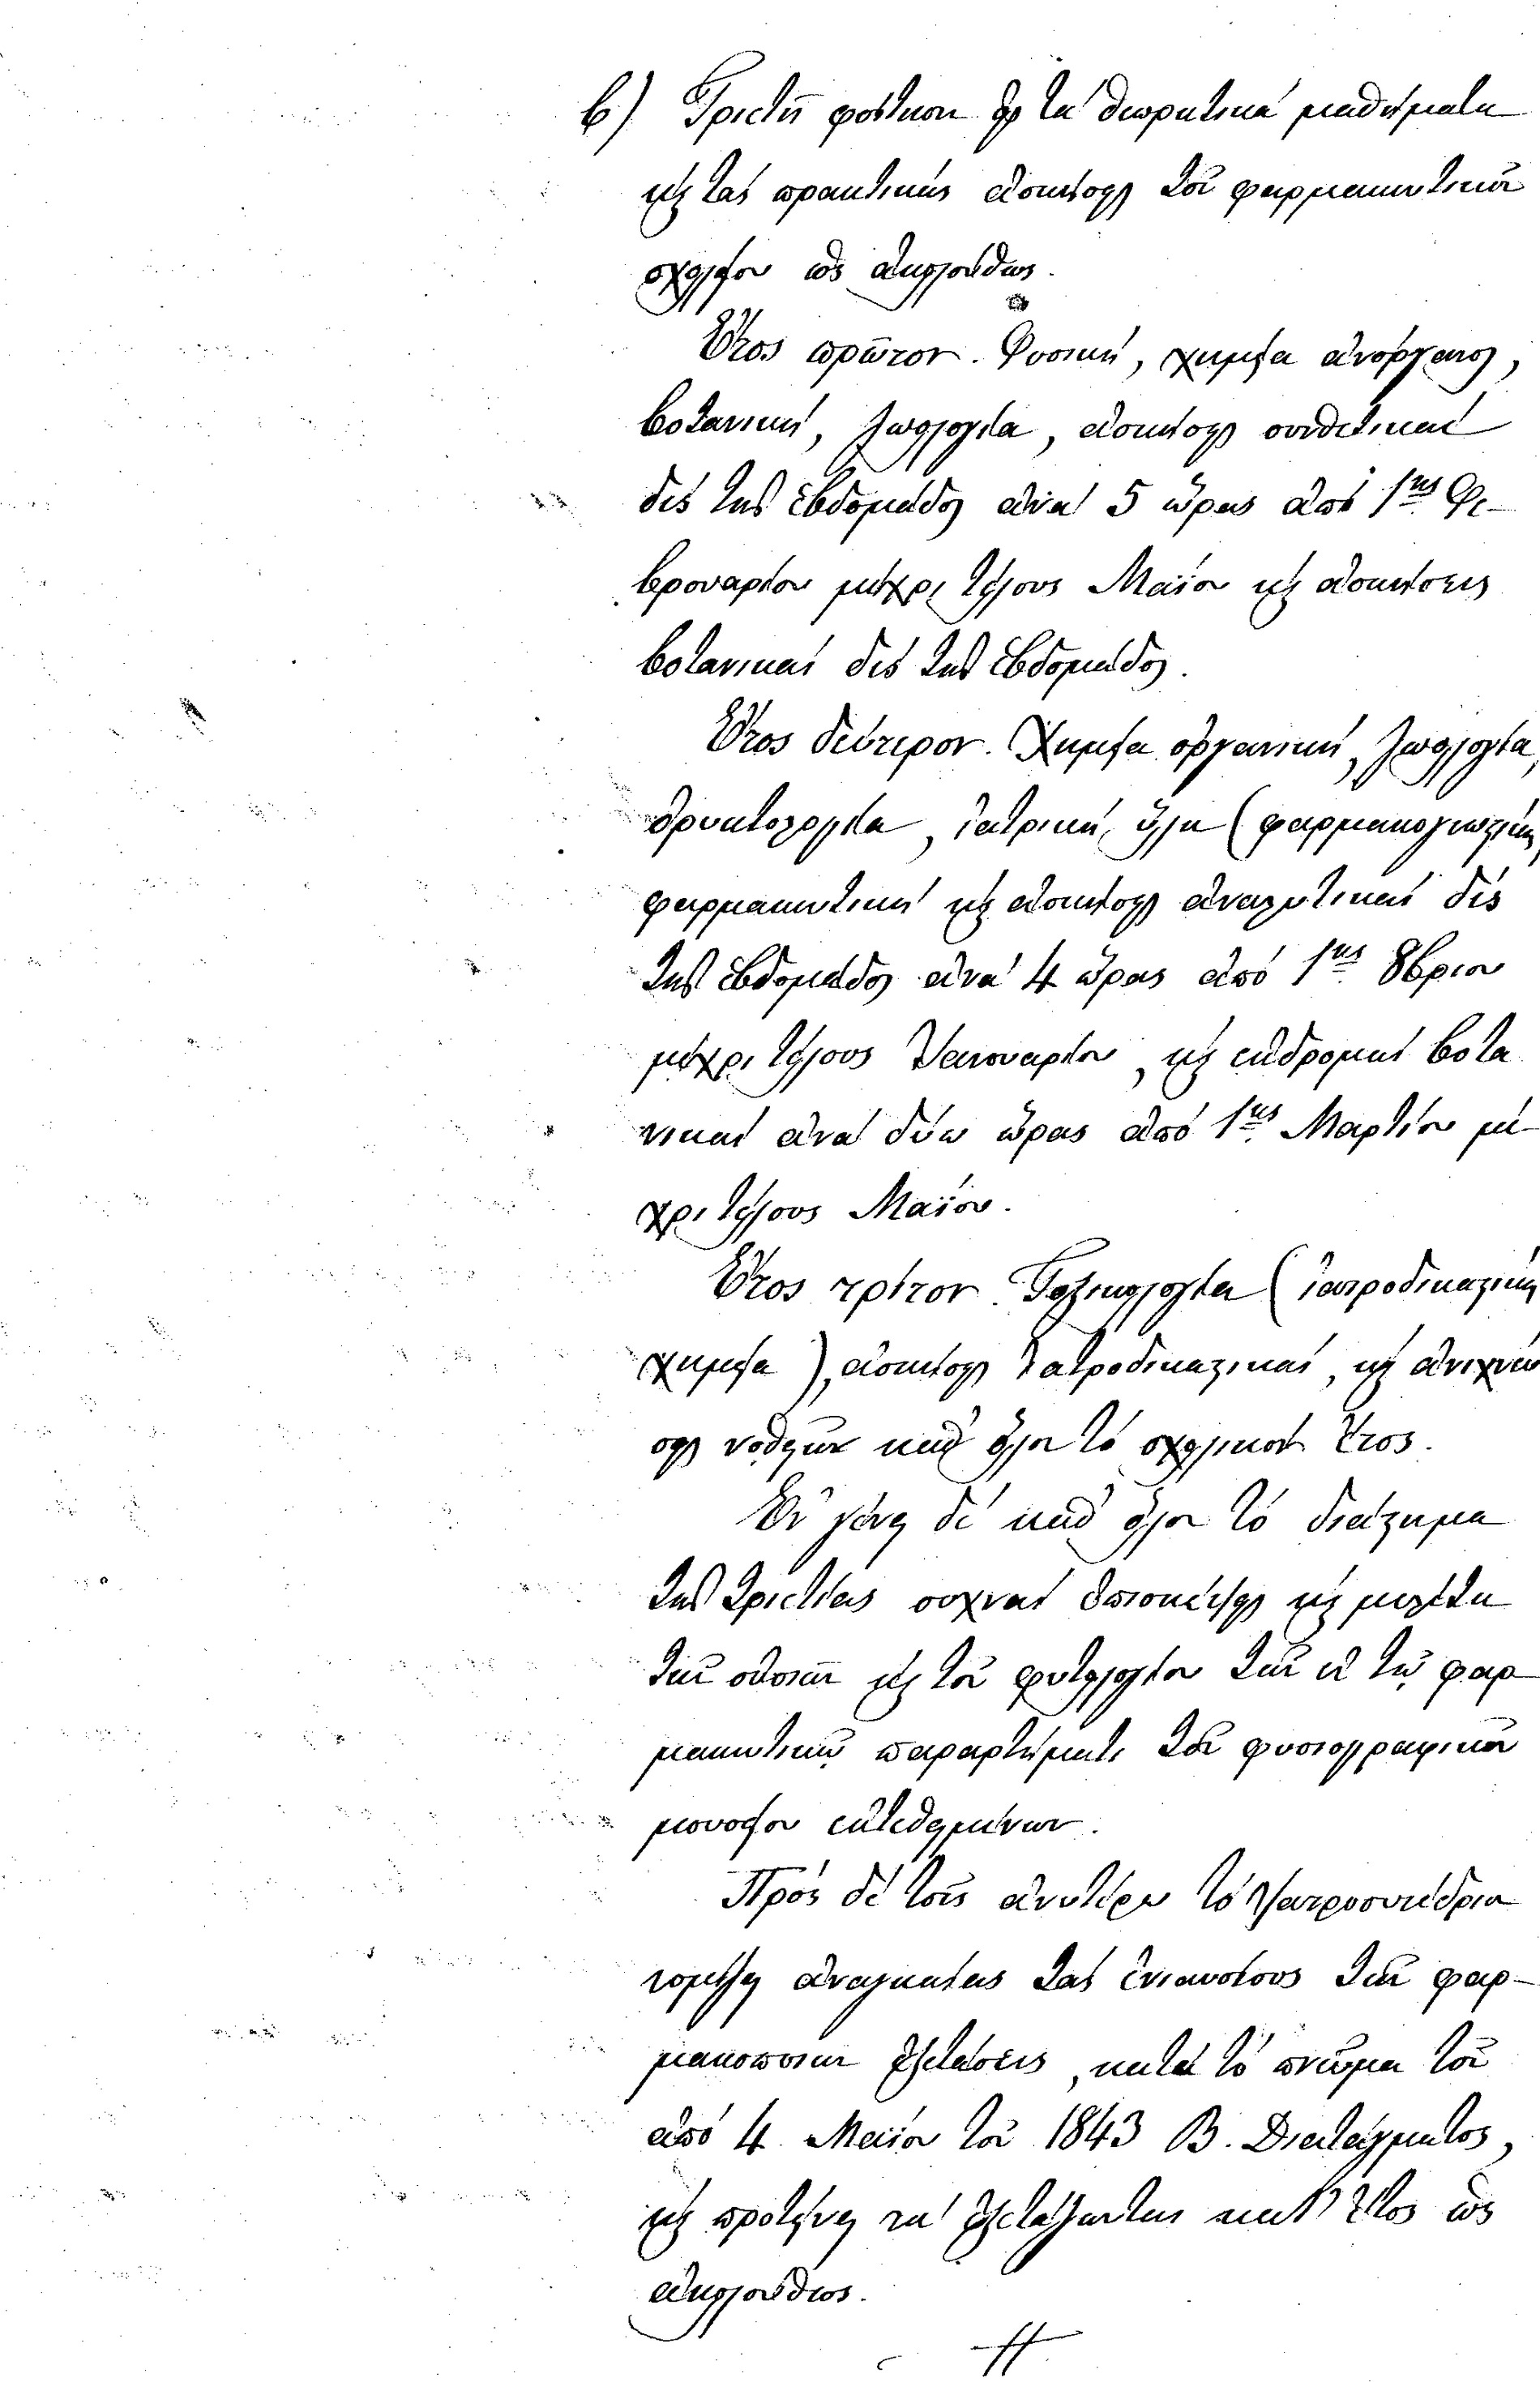 β) Τριετῆ φοίτησιν εἰς τὰ θεωρητικὰ μαθήματα
καὶ τὰς πρακτικὰς ἀσκήσεις τοῦ φαρμακευτικοῦ
σχολείου ὡς ἀκολούθως.
Ἔτος πρῶτον. Φυσική, χημεία ἀνόργανος,
βοτανική, ζωολογία, ἀσκήσεις συνθετικαὶ
δὶς τῆς ἑβδομάδος ἀνὰ 5 ὥρας ἀπὸ 1ης Φε-
βρουαρίου μέχρι τέλους Μαΐου καὶ ἀσκήσεις
βοτανικαὶ δὶς τῆς ἑβδομάδος.
Ἔτος δεύτερον. Χημεία ὀργανική, ζωολογία,
ὀρυκτολογία, ἰατρικὴ ὕλη (φαρμακογνωστικὴ)
φαρμακευτικὴ καὶ ἀσκήσεις ἀναλυτικαὶ δὶς
τῆς ἑβδομάδος ἀνὰ 4 ὥρας ἀπὸ 1ης 8βρίου
μέχρι τέλους Ἰανουαρίου, καὶ ἐκδρομαὶ βοτα
νικαὶ ἀνὰ δύω ὥρας ἀπὸ 1ης Μαρτίου μέ-
χρι τέλους Μαΐου.
Ἔτος τρίτον. Τοξικολογία (ἰατροδικαστικὴ
χημεία), ἀσκήσεις ἰατροδικαστικαί, καὶ ἀνιχνεύ
σεις νοθειῶν καθ' ὅλον τὸ σχολικὸν ἔτος.
Ἐν γένει δὲ καθ' ὅλον τὸ διάστημα
τῆς τριετίας συχναὶ ἐπισκέψεις καὶ μελέται
τῶν καὶ τοῦ φυτολογίου τῶν ἐν τῷ φαρ
μακευτικῷ παραρτήματι τοῦ φυσιογραφικοῦ
μουσείου ἐκτεθειμένων.
Πρὸς δὲ τοῖς ἀνωτέρω τὸ Ἰατροσυνέδριον
νομίζει ἀναγκαίας τὰς ἐνιαυσίους τῶν φαρ-
μακοποιῶν ἐξετάσεις, κατὰ τὸ πνεῦμα τοῦ
ἀπὸ 4 Μαΐου τοῦ 1843 Β. Διατάγματος,
καὶ προτείνει νὰ ἐξετάζωνται κατ' ἔτος ὡς
ἀκολούθως.